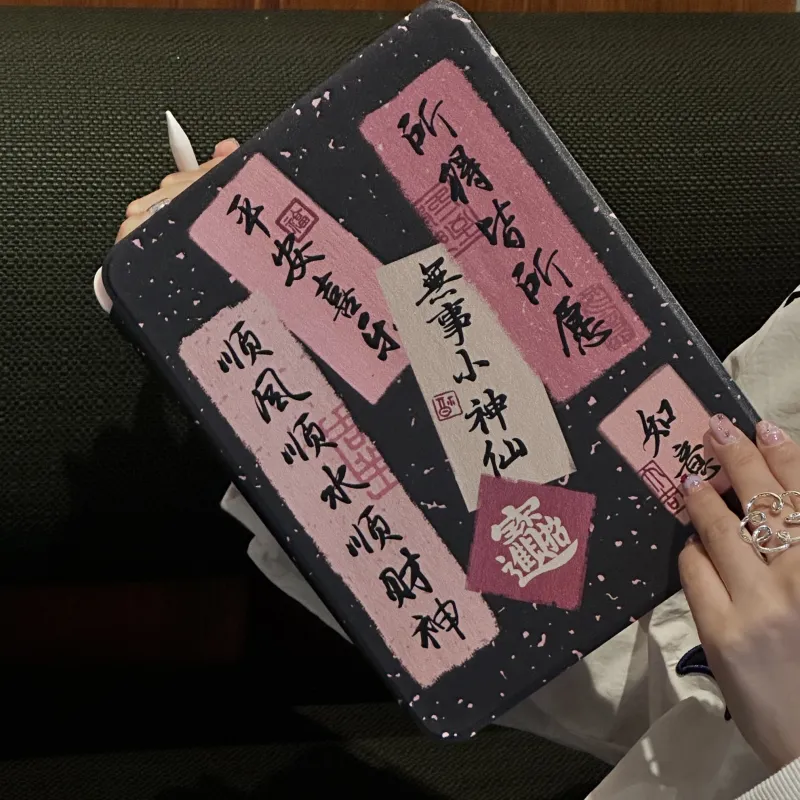 所得皆所愿
平安喜乐
福
無事小神仙
顺风顺水顺财神
知意
招財進寶